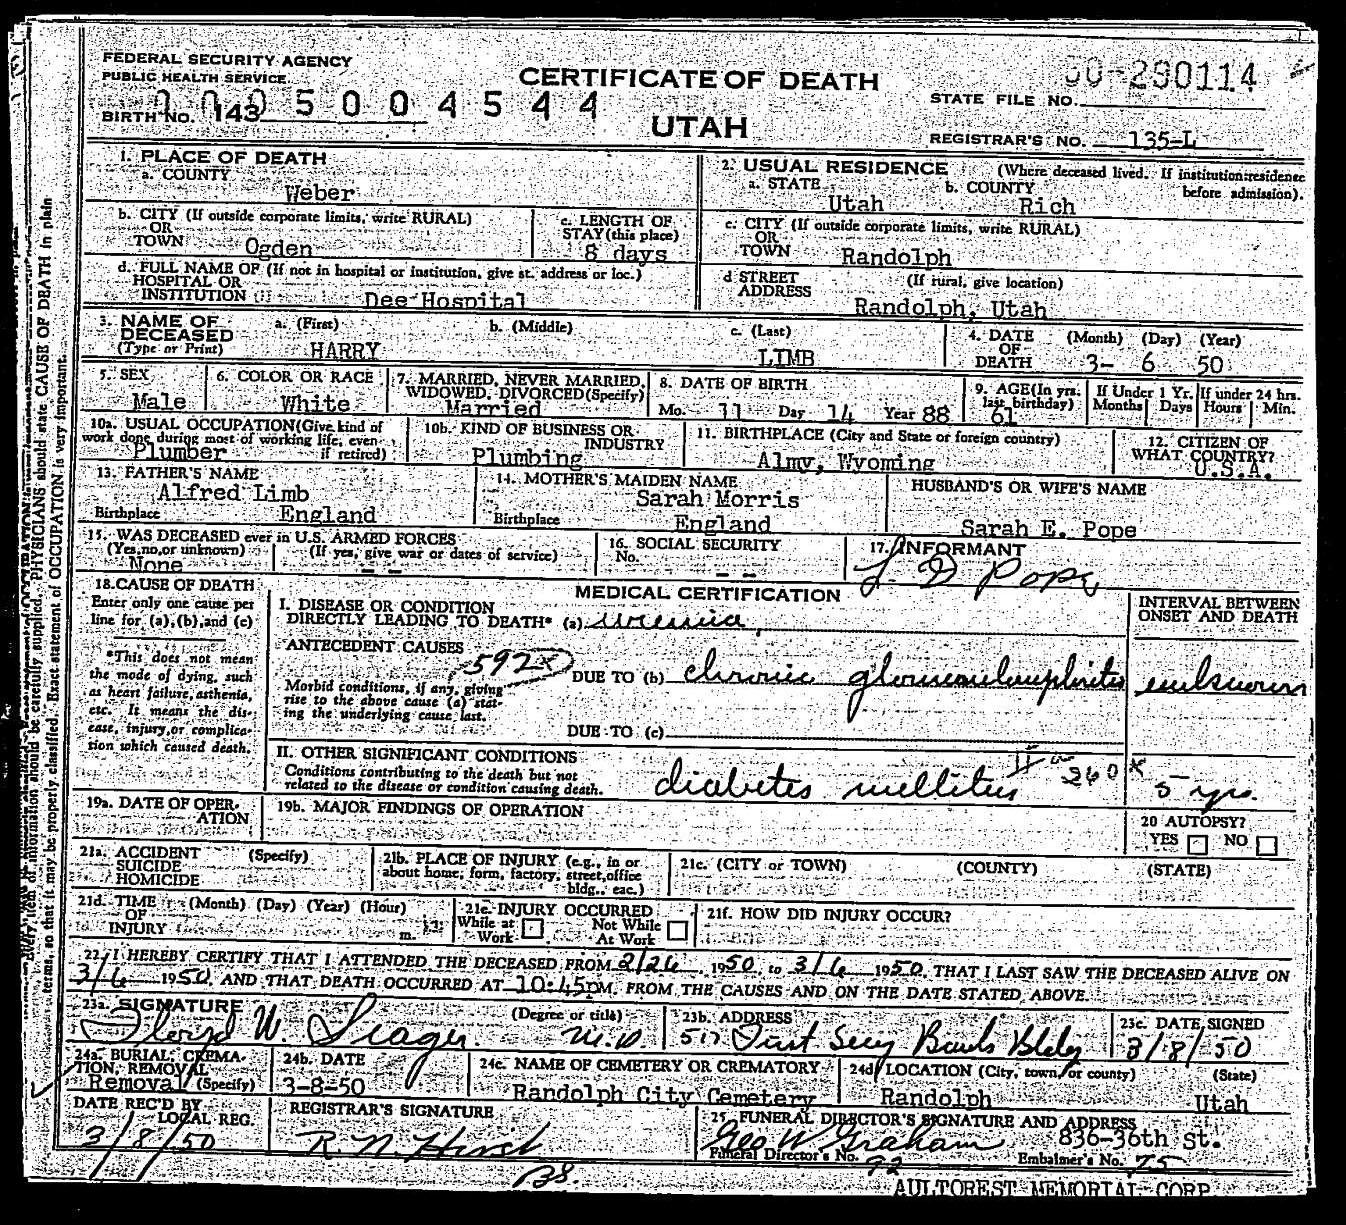 FEDERAL SECURITY AGENCY
PUBLIC HEALTH SERVICE
CERTIFICATE OF DEATH
UTAH
BIRTH NO. 143 5004544
STATE FILE NO. 50-290114
REGISTRAR'S NO. 135-L
1. PLACE OF DEATH
a. COUNTY
Weber
2. USUAL RESIDENCE (Where deceased lived. If institution:residence before admission).
a. STATE b. COUNTY
Utah Rich
b. CITY (If outside corporate limits, write RURAL)
OR
TOWN Ogden
c. LENGTH OF
STAY(this place)
8 days
c. CITY (If outside corporate limits, write RURAL)
OR
TOWN Randolph
d. FULL NAME OF (If not in hospital or institution, give st. address or loc.)
HOSPITAL OR
INSTITUTION Dee Hospital
d STREET (If rural, give location)
ADDRESS
Randolph, Utah
3. NAME OF
DECEASED
(Type or Print)
a. (First) b. (Middle) c. (Last)
HARRY LIMB
4. DATE (Month) (Day) (Year)
OF
DEATH 3- 6 50
5. SEX
Male
6. COLOR OR RACE
White
7. MARRIED, NEVER MARRIED,
WIDOWED, DIVORCED(Specify)
Married
8. DATE OF BIRTH
Mo. 11 Day 14 Year 88
9. AGE(In yrs.
last birthday)
61
If Under 1 Yr.
Months Days
If under 24 hrs.
Hours Min.
10a. USUAL OCCUPATION(Give kind of
work done during most of working life, even
if retired)
Plumber
10b. KIND OF BUSINESS OR
INDUSTRY
Plumbing
11. BIRTHPLACE (City and State or foreign country)
Almy, Wyoming
12. CITIZEN OF
WHAT COUNTRY?
U.S.A.
13. FATHER'S NAME
Alfred Limb
Birthplace England
14. MOTHER'S MAIDEN NAME
Sarah Morris
Birthplace England
HUSBAND'S OR WIFE'S NAME
Sarah E. Pope
15. WAS DECEASED ever in U.S. ARMED FORCES
(Yes,no,or unknown) (If yes, give war or dates of service)
None --
16. SOCIAL SECURITY
No. --
17. INFORMANT
Pope
18.CAUSE OF DEATH
Enter only one cause per
line for (a),(b),and (c)
*This does not mean
the mode of dying, such
as heart failure, asthenia,
etc. It means the dis-
ease, injury,or complica-
tion which caused death.
MEDICAL CERTIFICATION
I. DISEASE OR CONDITION
DIRECTLY LEADING TO DEATH* (a) uremia
ANTECEDENT CAUSES
592x
Morbid conditions, if any, giving
rise to the above cause (a) stat-
ing the underlying cause last.
DUE TO (b) chronic glomerulonephritis
DUE TO (c)
INTERVAL BETWEEN
ONSET AND DEATH
unknown
II. OTHER SIGNIFICANT CONDITIONS
Conditions contributing to the death but not
related to the disease or condition causing death.
diabetes mellitus 260x
5 yrs.
19a. DATE OF OPER-
ATION
19b. MAJOR FINDINGS OF OPERATION
20 AUTOPSY?
YES NO
21a. ACCIDENT (Specify)
SUICIDE
HOMICIDE
21b. PLACE OF INJURY (e.g., in or
about home, form, factory, street,office
bldg., eac.)
21c. (CITY or TOWN) (COUNTY) (STATE)
21d. TIME (Month) (Day) (Year) (Hour)
OF
INJURY m.
21e. INJURY OCCURRED
While at Work Not While At Work
21f. HOW DID INJURY OCCUR?
22. I HEREBY CERTIFY THAT I ATTENDED THE DECEASED FROM 2/26, 1950, to 3/6 1950, THAT I LAST SAW THE DECEASED ALIVE ON
3/6 1950, AND THAT DEATH OCCURRED AT 10:45PM, FROM THE CAUSES AND ON THE DATE STATED ABOVE.
23a. SIGNATURE (Degree or title)
Floyd W. Seager. M.D.
23b. ADDRESS
517 First Secy Bank Bldg
23c. DATE SIGNED
3/8/50
24a. BURIAL, CREMA-
TION, REMOVAL
Removal (Specify)
24b. DATE
3-8-50
24c. NAME OF CEMETERY OR CREMATORY
Randolph City Cemetery
24d. LOCATION (City, town, or county) (State)
Randolph Utah
DATE REC'D BY
LOCAL REG.
3/8/50
REGISTRAR'S SIGNATURE
R. N. Hirst
25. FUNERAL DIRECTOR'S SIGNATURE AND ADDRESS
Geo W Graham 836-36th St.
Funeral Director's No. 92 Embalmer's No. 75
AULTOREST MEMORIAL CORP